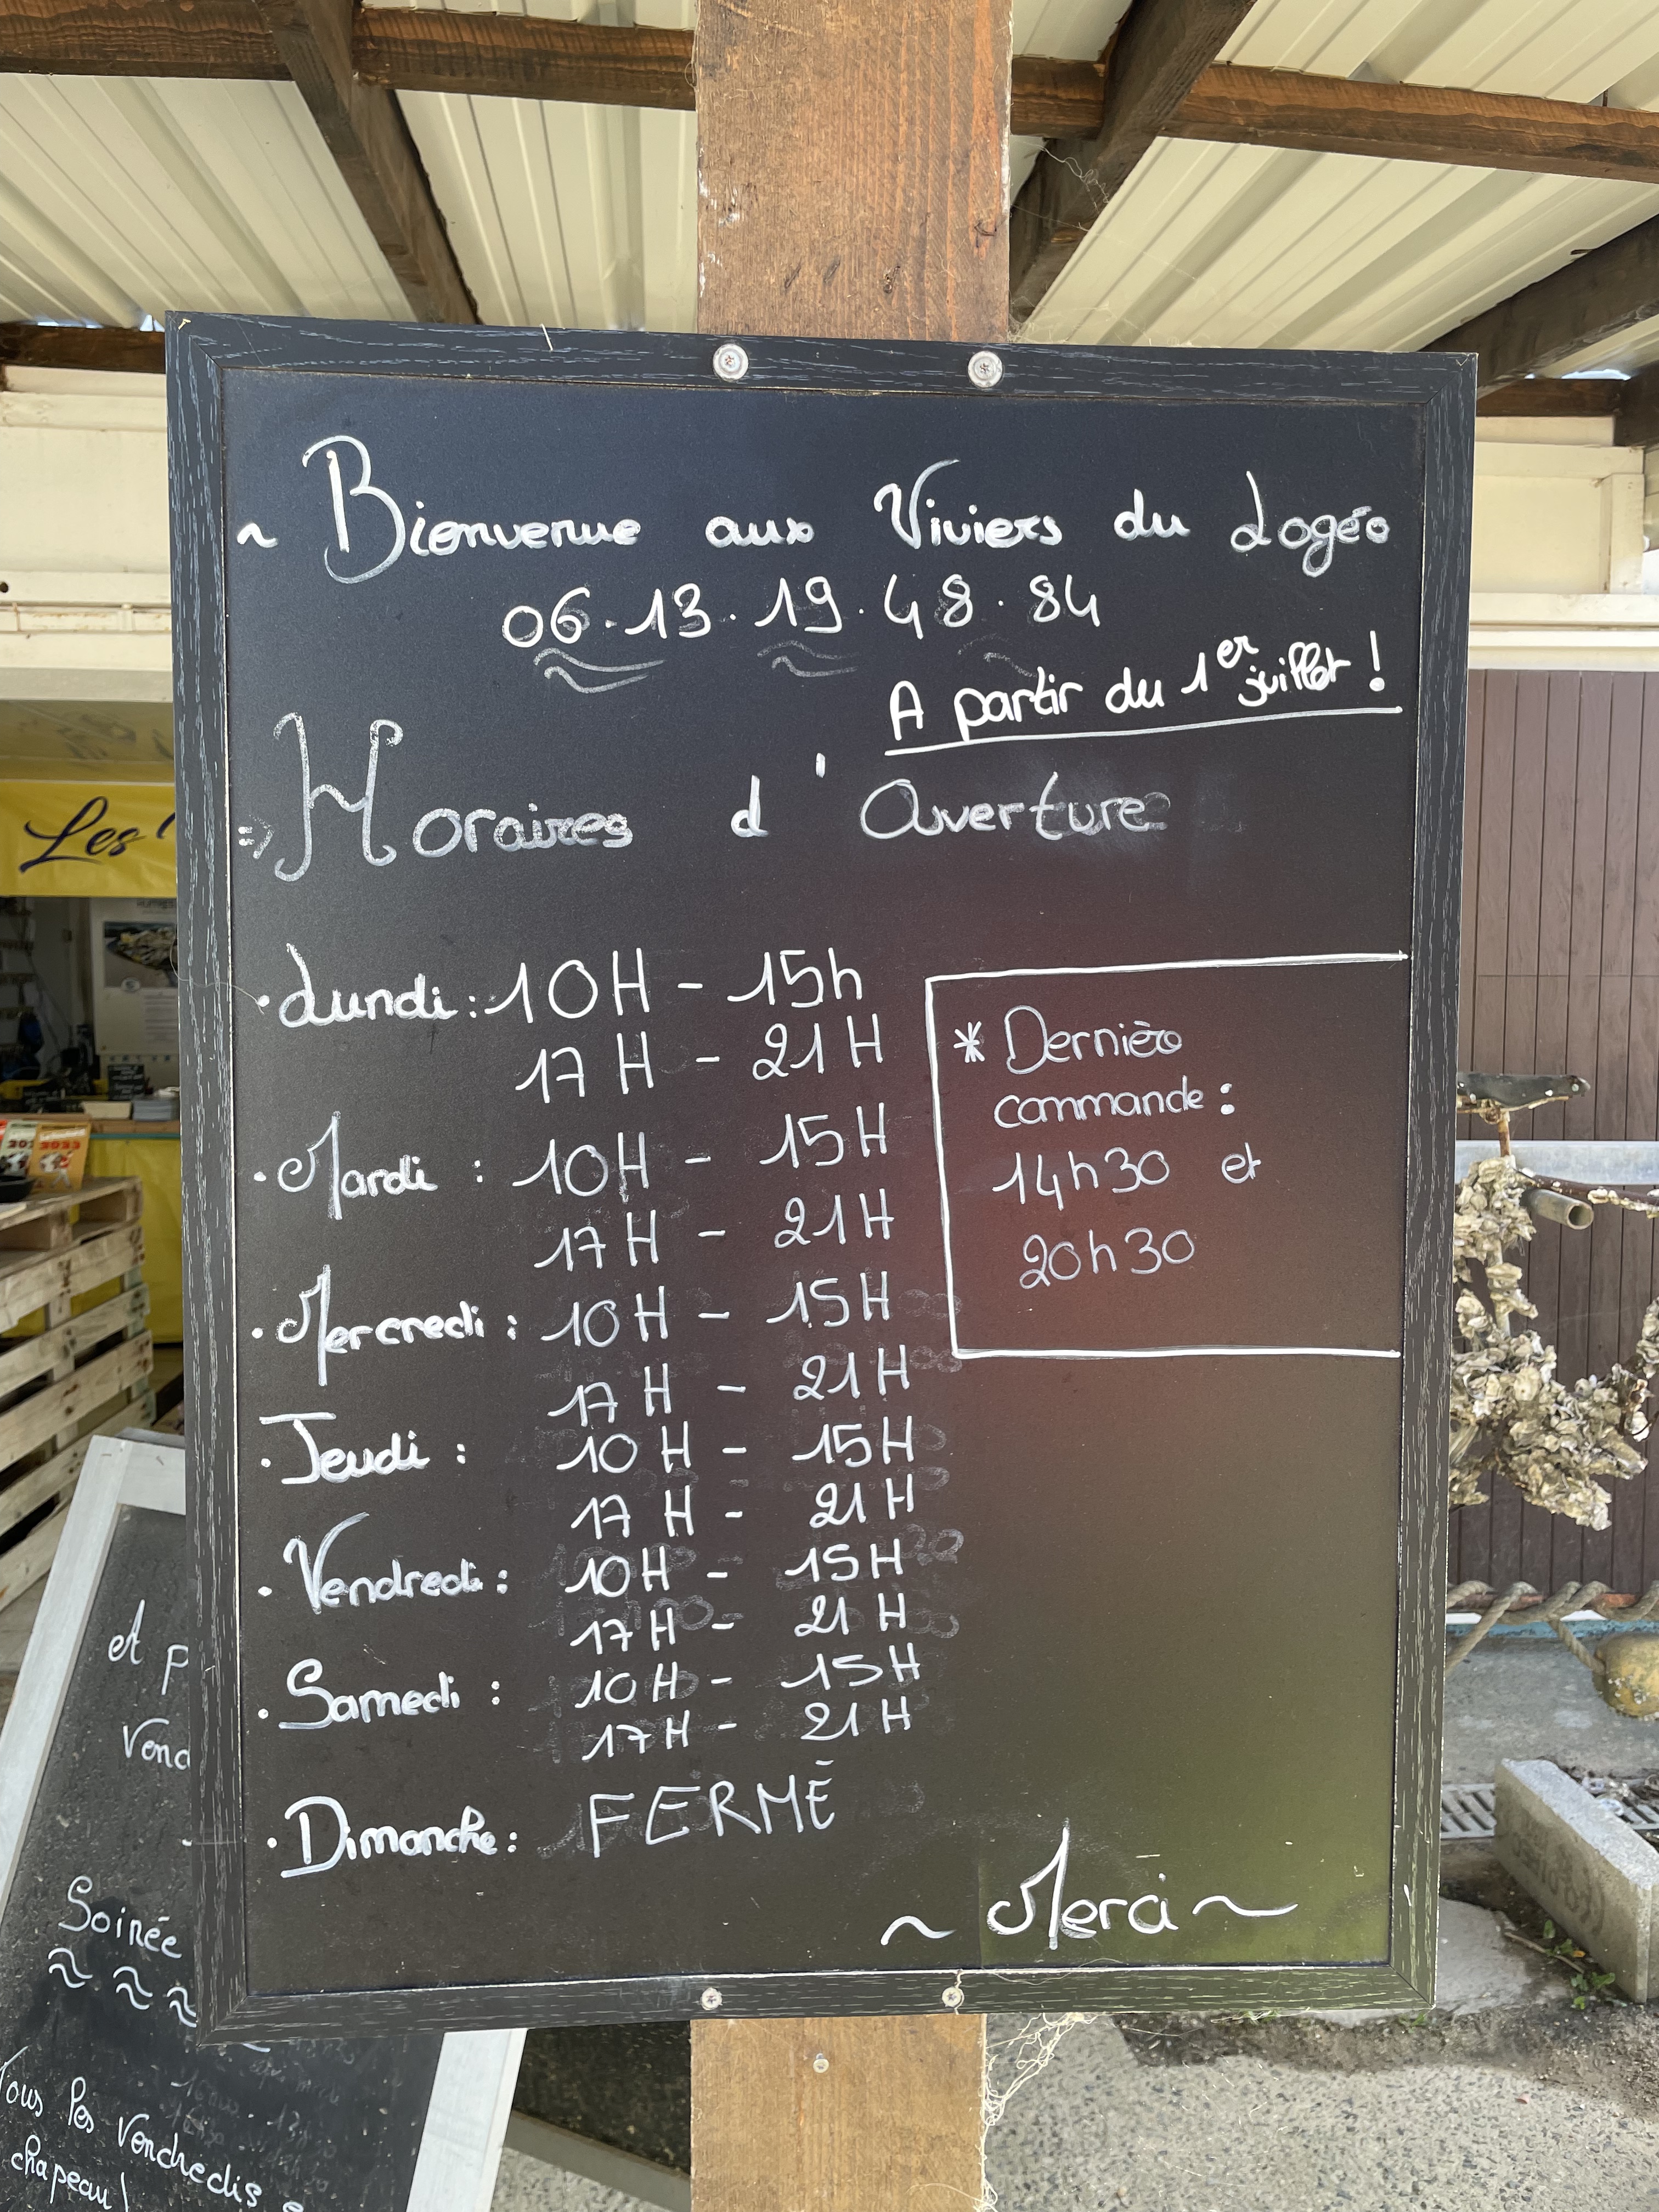 ~ Bienvenue aux Viviers du Logéo
06.13.19.48.84
A partir du 1er juillet !
⇒ Horaires d'Ouverture
• Lundi : 10H - 15h
17H - 21H
• Mardi : 10H - 15H
17H - 21H
• Mercredi : 10H - 15H
17H - 21H
• Jeudi : 10H - 15H
17H - 21H
• Vendredi : 10H - 15H
17H - 21H
• Samedi : 10H - 15H
17H - 21H
• Dimanche : FERMÉ
* Dernière
commande :
14h30 et
20h30
~ Merci ~
Les
Soirée
Tous les vendredis
chapeau !